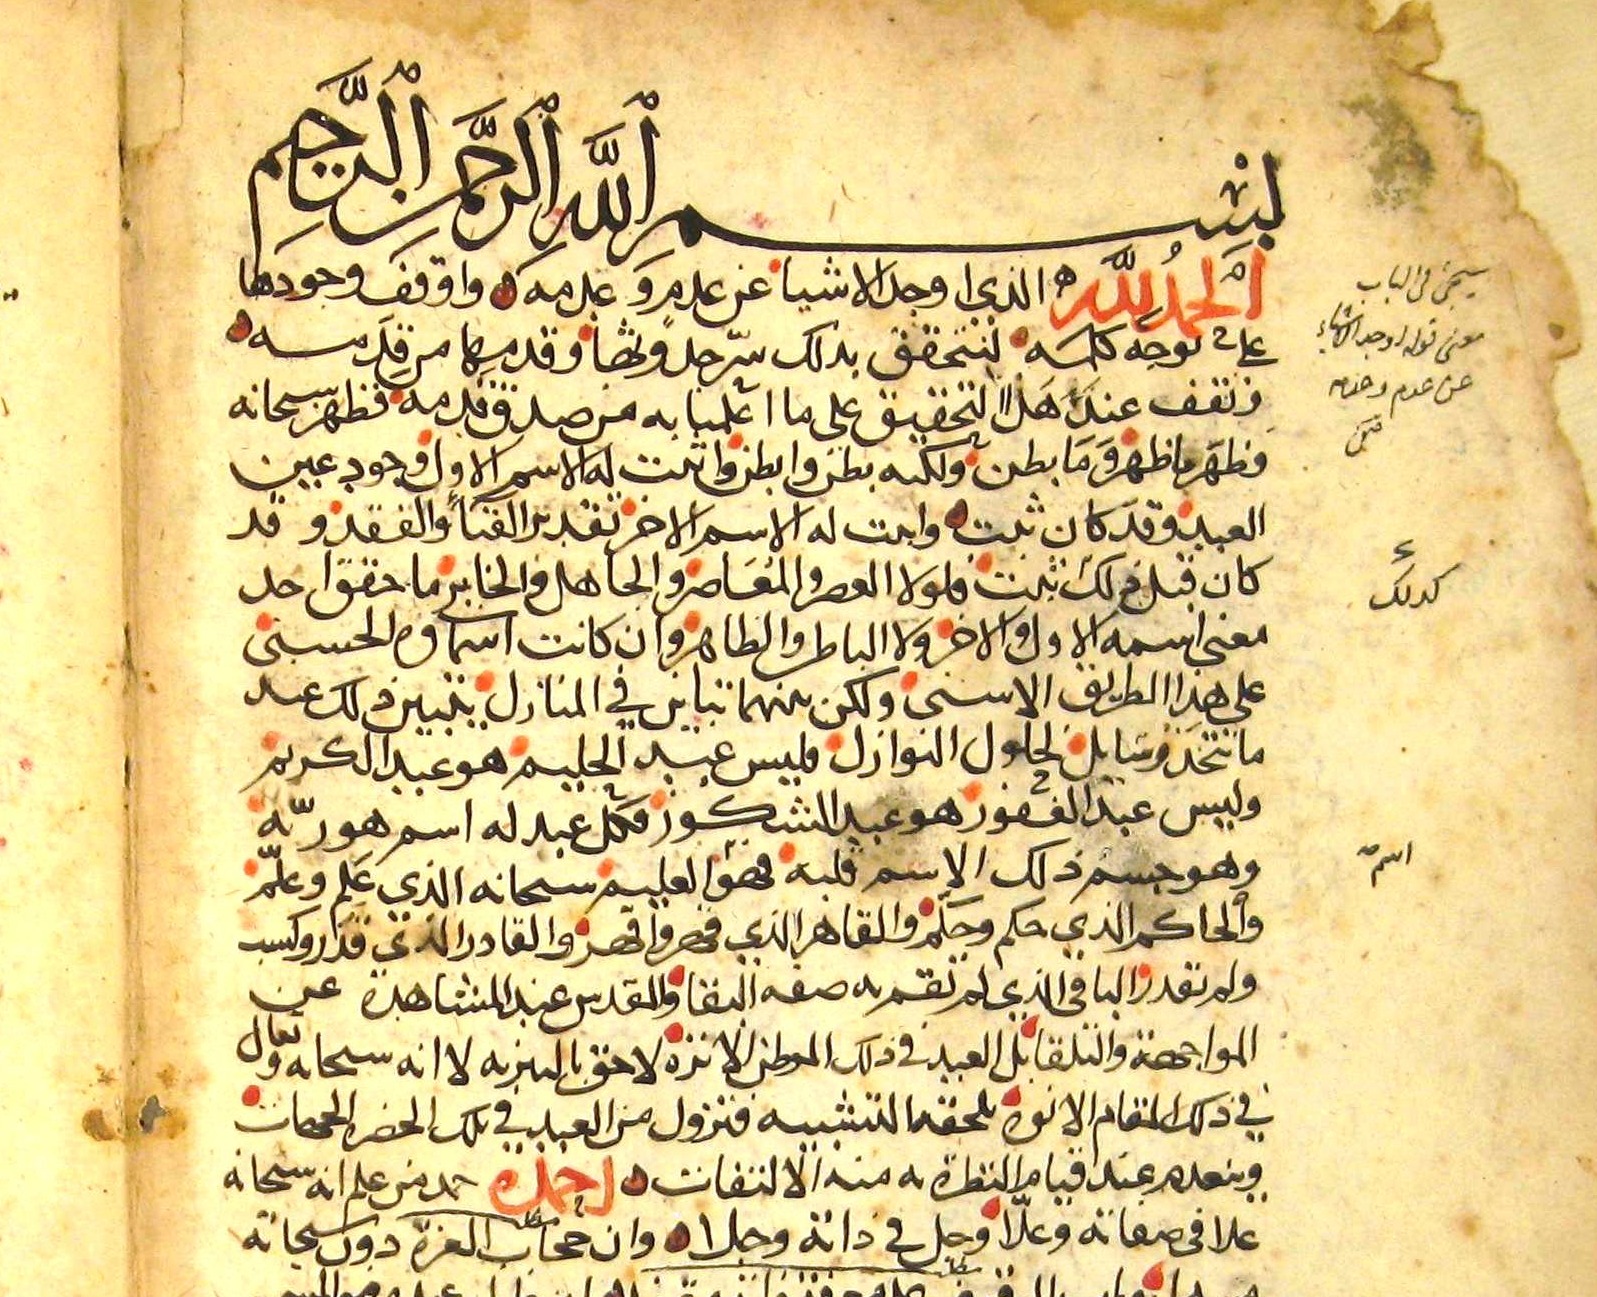 بسم الله الرحمن الرحيم
الحمد لله الذي اوجد الاشيا عن عدم وعدمه واوقف وجودها
على توجه كلمه لنتحقق بذلك سر حدوثها وقدمها من قدمه
ونقف عند هذا التحقيق على ما اعلمنا به من صدق قدمه فظهر سبحانه
وظهر ما ظهر وما بطن ولكنه بطن وابطن واثبت له الاسم الاول وجود عين
العبد وقد كان ثبت واثبت له الاسم الاخر تقدير الفنآء والفقد وقد
كان قبل ذلك ثبت فلولا العصر والمعاصر والجاهل والخابر ما حقق احد
معنى اسمه الاول والاخر ولا الباطن والظاهر وان كانت اسماوه الحسنى
على هذا الطريق الاسنى ولكن بينهما تباين في المنازل يتبين ذلك عند
ما تتخذ وسايل لحلول النوازل فليس عبد الحليم هو عبد الكريم
وليس عبد الغفور هو عبد الشكور فكل عبد له اسم هو ربه
وهو جسم ذلك الاسم قلبه فهو العليم سبحانه الذي علم وعلم
والحاكم الذي حكم وحكم والقاهر الذي قهر واقهر والقادر الذي قدر وكسب
ولم يقدر الباقي الذي لم تقم به صفه البقا والمقدس عند المشاهدة عن
المواجهة والتلقا بل العبد في ذلك الموطن الانزه لاحق بالتنزيه لا انه سبحانه وتعالى
في ذلك المقام الانوه يلحقه التشبيه فتزول من العبد في تلك الحضره الجهات
وينعدم عند قيام النظرة به منه الالتفات احمده حمد من علم انه سبحانه
علا في صفاته وعلا وجل في ذاته وجلا وان حجاب العزة دون سبحاته
سيجئ في الباب
معنى قوله اوجد الاشياء
عن عدم وعدمه
كذلك
اسم